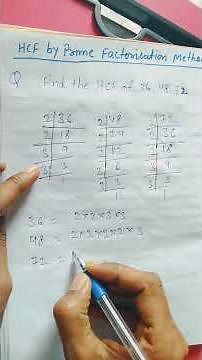 HCF by Prime Factorisation Method
Q Find the HCF of 36, 48, 72
2 | 36    2 | 48    2 | 72
2 | 18    2 | 24    2 | 36
3 | 9    2 | 12    2 | 18
3 | 3    2 | 6    3 | 9
1    3 | 3    3 | 3
1    1
36 = 2×2×3×3
48 = 2×2×2×2×3
72 =